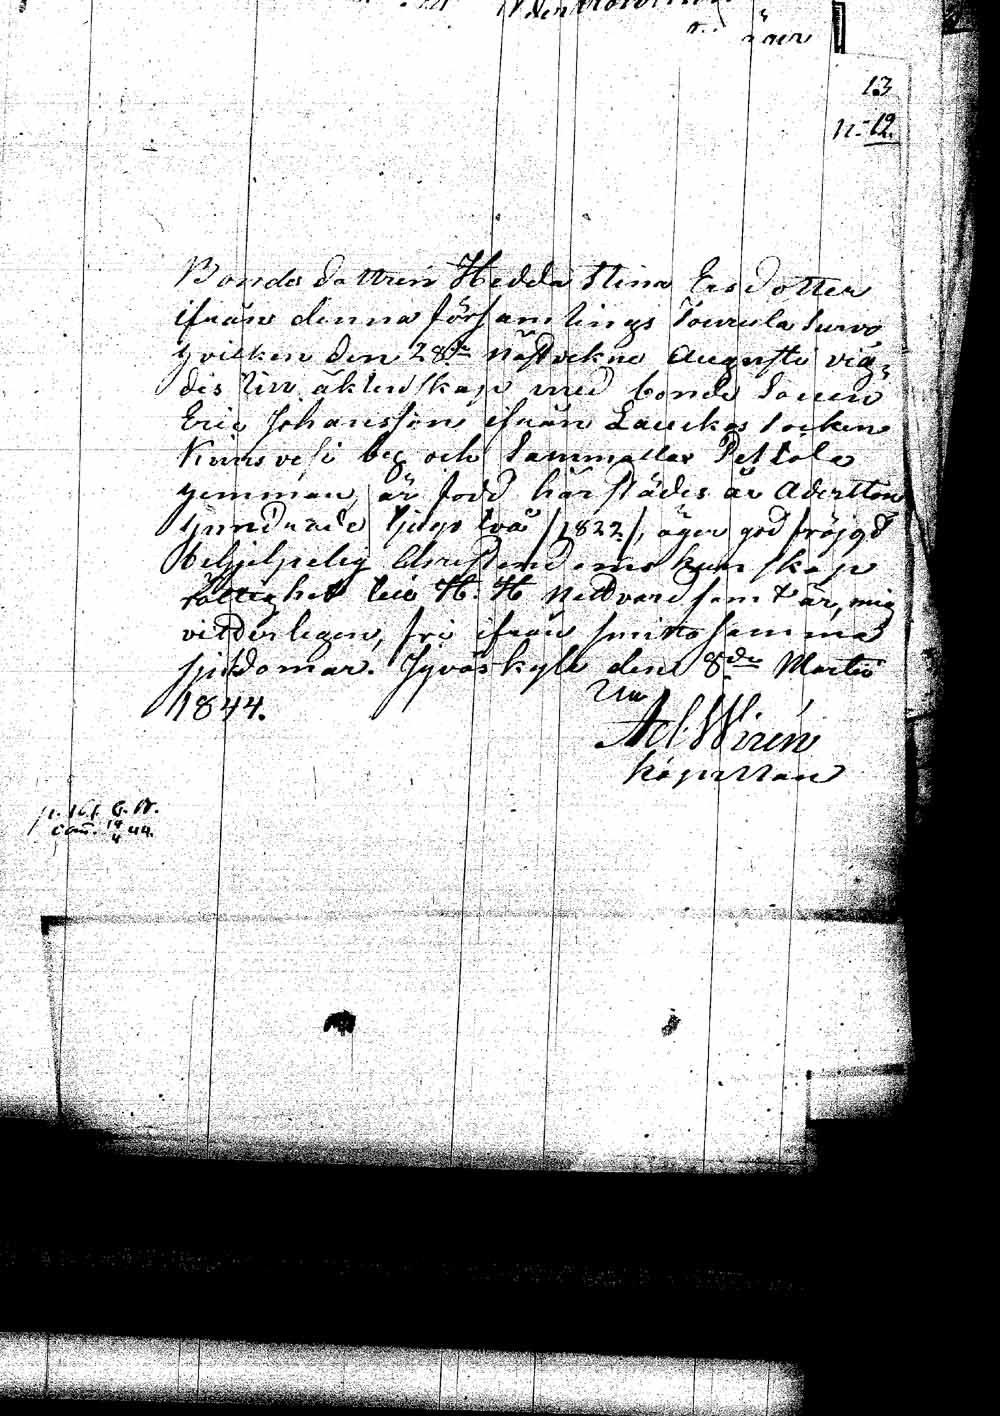 13
12.
Bondedottren Hedda Stina Ersdotter
ifrån denna församlings Tourula Survo
hvilken den 28de nästvekne Augusti vig-
dis till äktenskap med bonde Sonen
Eric Johansson ifrån Laukas Socken
Kuusvesi by och Sammallax Pellola
hemman, är född härstädes år Adertton
hundrade tjugo två /1822/, äger god fröjgd
behjelpelig Christendoms kunskap
rättighet till H. H. Nattvard samt är, mig
vitterligen, fri ifrån smittosamma
sjukdomar. Jyväskylä den 8de Martii
1844.
Ad. Wirén
Kapellan